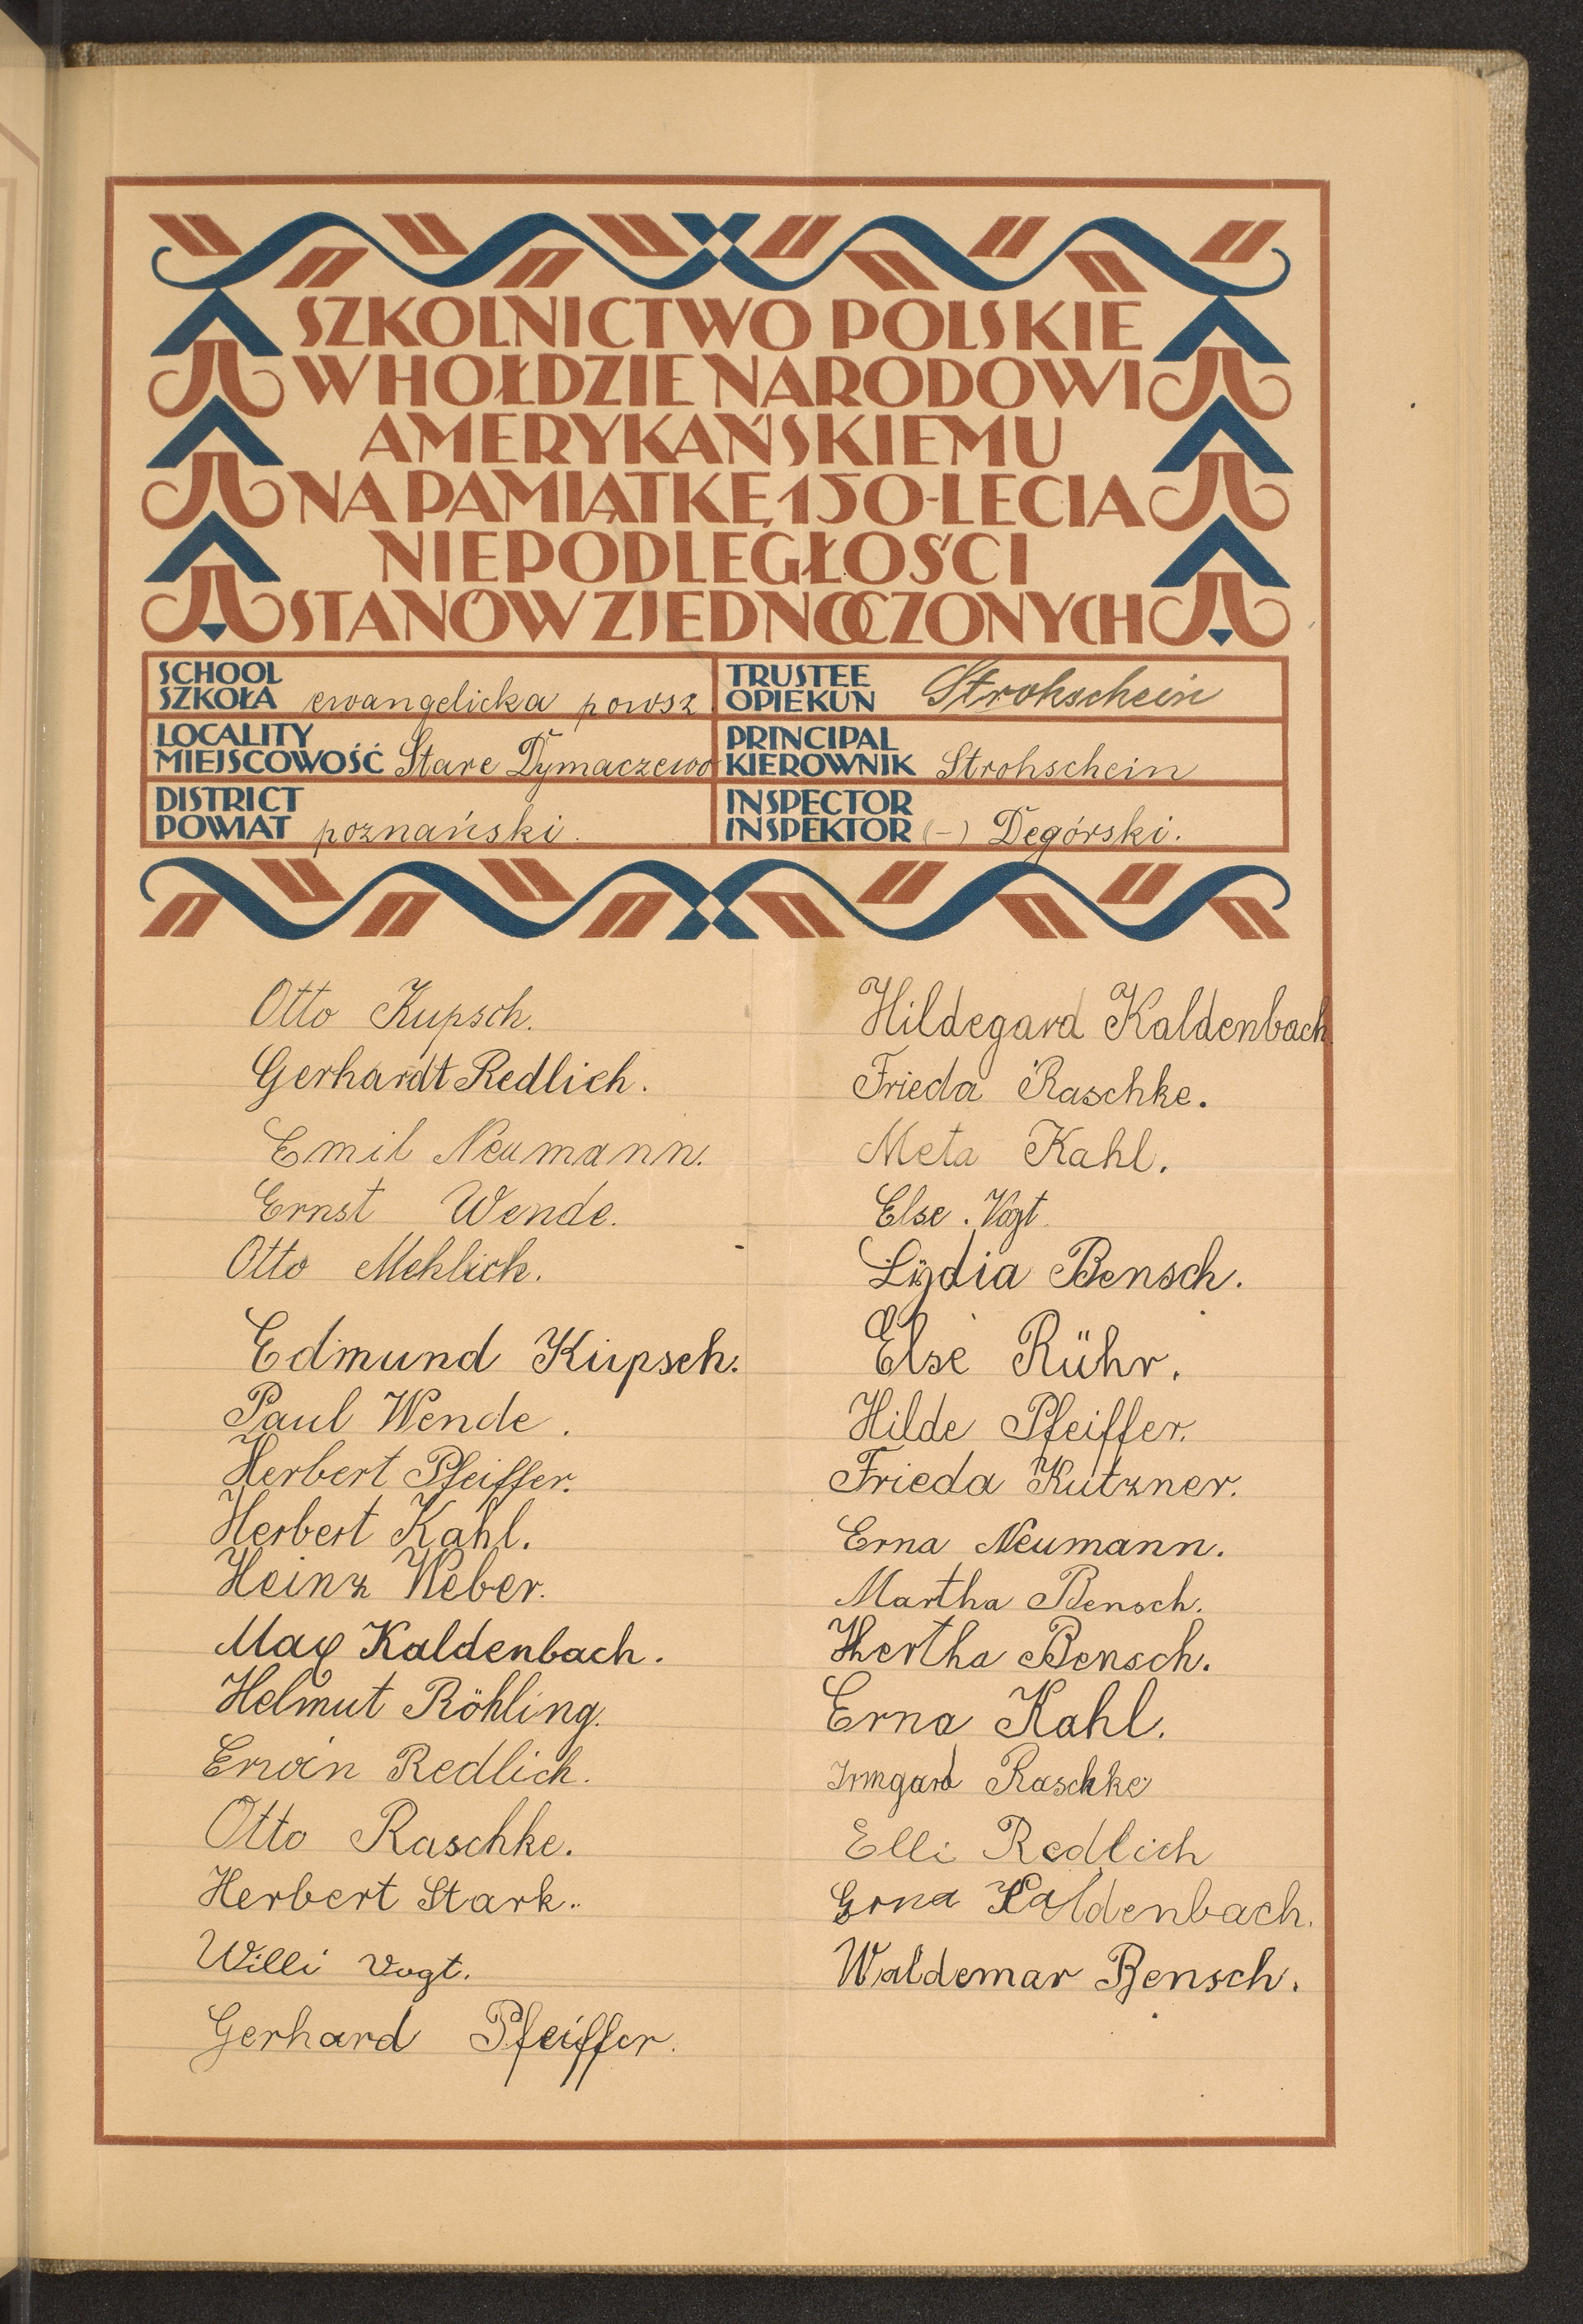 SZKOLNICTWO POLSKIE
W HOŁDZIE NARODOWI
AMERYKAŃSKIEMU
NA PAMIĄTKĘ 150-LECIA
NIEPODLEGŁOŚCI
STANÓW ZJEDNOCZONYCH
SCHOOL
SZKOŁA ewangelicka powsz
TRUSTEE
OPIEKUN Strohschein
LOCALITY
MIEJSCOWOŚĆ Stare Dymaczewo
PRINCIPAL
KIEROWNIK Strohschein
DISTRICT
POWIAT poznański.
INSPECTOR
INSPEKTOR (-) Degórski.
Otto Kupsch.
Gerhardt Redlich.
Emil Neumann.
Ernst Wende.
Otto Mehlich.
Edmund Kupsch.
Paul Wende.
Herbert Pfeiffer.
Herbert Kahl.
Heinz Weber.
Max Kaldenbach.
Helmut Röhling.
Erwin Redlich.
Otto Raschke.
Herbert Stark..
Willi Vogt.
Gerhard Pfeiffer.
Hildegard Kaldenbach
Frieda Raschke.
Meta Kahl.
Else. Vogt.
Lÿdia Bensch.
Else Rühr.
Hilde Pfeiffer.
Frieda Kutzner.
Erna Neumann.
Martha Bensch.
Hertha Bensch.
Erna Kahl.
Irmgard Raschke
Elli Redlich
Erna Kaldenbach.
Waldemar Bensch.